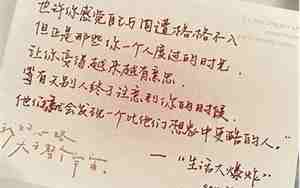 也许你感觉自己与周遭格格不入
但正是那些你一个人度过的时光
让你变得越来越有意思.
等有天别人终于注意到你的时候
他们就会发现一个比他们想象中更酷的人."
—"生活大爆炸"